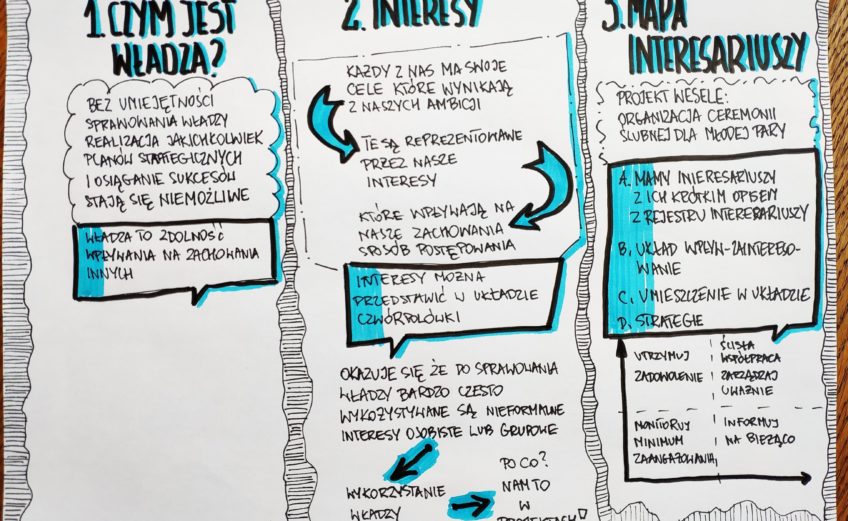 1. CZYM JEST
WŁADZA?
BEZ UMIEJĘTNOŚCI
SPRAWOWANIA WŁADZY
REALIZACJA JAKICHKOLWIEK
PLANÓW STRATEGICZNYCH
I OSIĄGANIE SUKCESÓW
STAJĄ SIĘ NIEMOŻLIWE
WŁADZA TO ZDOLNOŚĆ
WPŁYWANIA NA ZACHOWANIA
INNYCH
2. INTERESY
KAŻDY Z NAS MA SWOJE
CELE KTÓRE WYNIKAJĄ
Z NASZYCH AMBICJI
TE SĄ REPREZENTOWANE
PRZEZ NASZE
INTERESY
KTÓRE WPŁYWAJĄ NA
NASZE ZACHOWANIA
SPOSÓB POSTĘPOWANIA
INTERESY MOŻNA
PRZEDSTAWIĆ W UKŁADZIE
CZWÓRPOLÓWKI
OKAZUJE SIĘ ŻE DO SPRAWOWANIA
WŁADZY BARDZO CZĘSTO
WYKOZYSTYWANE SĄ NIEFORMALNE
INTERESY OSOBISTE LUB GRUPOWE
WYKORZYSTANIE
WŁADZY
PO CO?
NAM TO
W
PROJEKTACH!
3. MAPA
INTERESARIUSZY
PROJEKT WESELE:
ORGANIZACJA CEREMONII
ŚLUBNEJ DLA MŁODEJ PARY
A. MAMY INTERESARIUSZY
Z ICH KRÓTKIM OPISEM
Z REJESTRU INTERESARIUSZY
B. UKŁAD WPŁYW-ZAINTERESO-
WANIE
C. UMIESZCZENIE W UKŁADZIE
D. STRATEGIE
UTRZYMUJ
ZADOWOLENIE
ŚCISŁA
WSPÓŁPRACA
ZARZĄDZAJ
UWAŻNIE
MONITORUJ
MINIMUM
ZAANGAŻOWANIA
INFORMUJ
NA BIEŻĄCO